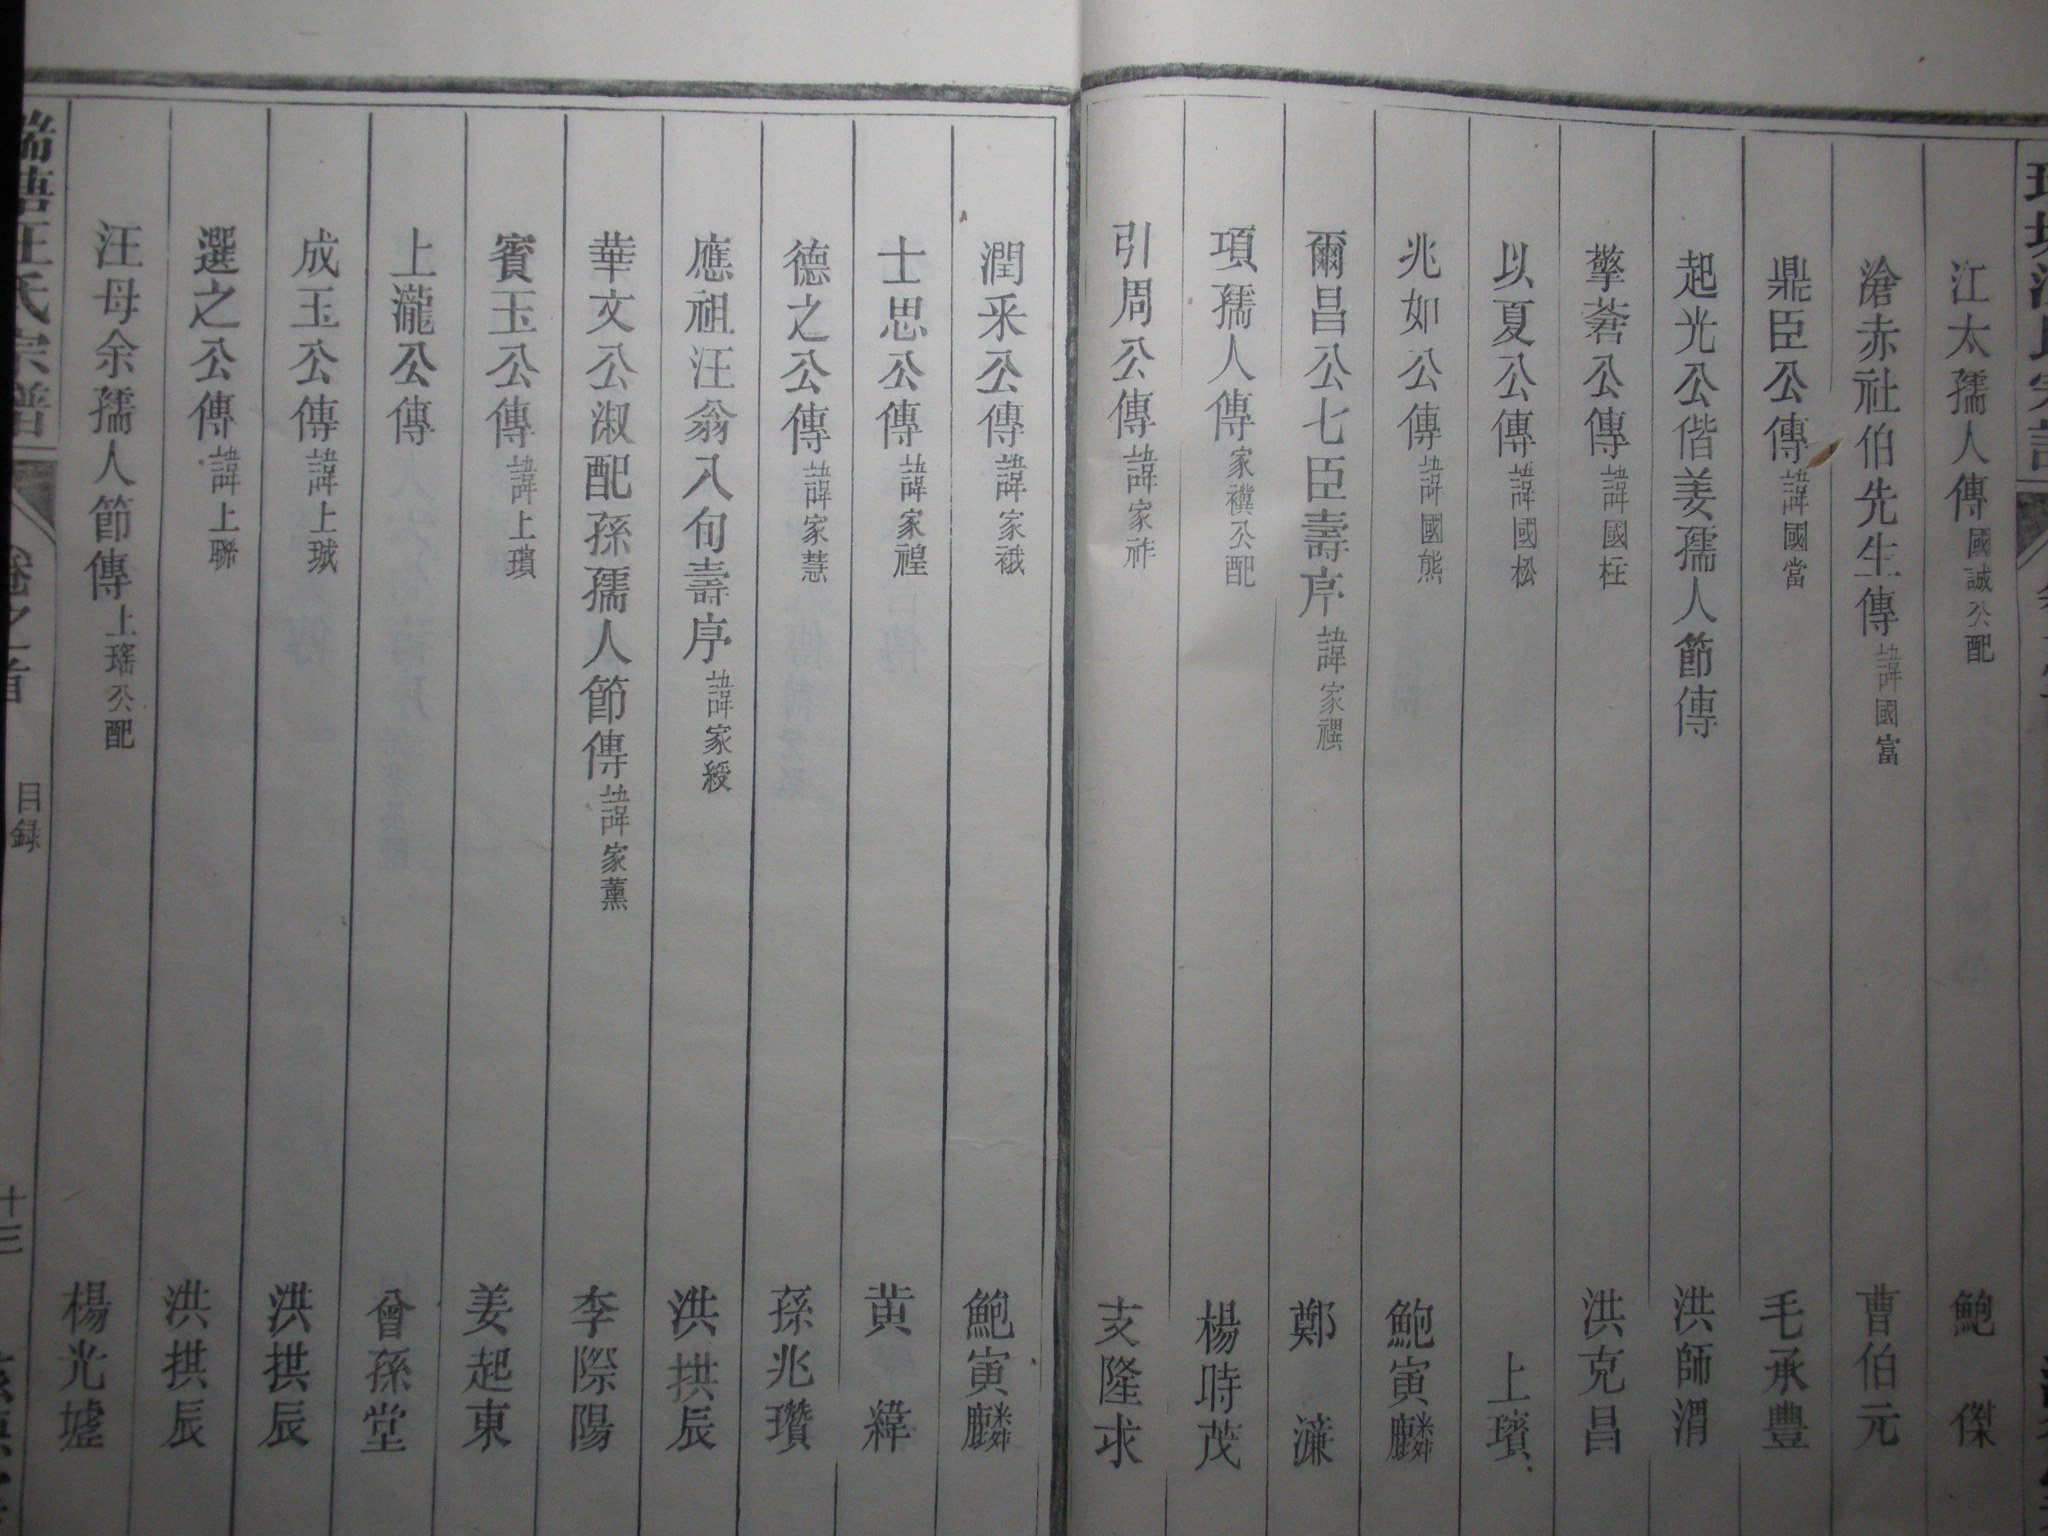 江太孺人傳 國誠公配 鮑傑
滄赤社伯先生傳 諱國富 曹伯元
鼎臣公傳 諱國當 毛承豐
起光公偕姜孺人節傳 洪師渭
擎蒼公傳 諱國枉 洪克昌
以夏公傳 諱國松 上璸
兆如公傳 諱國熊 鮑寅麟
爾昌公七臣壽序 諱家禩 鄭濂
項孺人傳 家禩公配 楊時茂
引周公傳 諱家祚 支隆求
潤采公傳 諱家祴 鮑寅麟
士思公傳 諱家禋 黄緯
德之公傳 諱家慧 孫兆瓚
應祖汪翁八旬壽序 諱家綬 洪拱辰
華文公淑配孫孺人節傳 諱家薰 李際陽
賓玉公傳 諱上璸 姜起東
上瀧公傳 曾孫堂
成玉公傳 諱上珹 洪拱辰
選之公傳 諱上聯 洪拱辰
汪母余孺人節傳 上瑤公配 楊光墟
汪氏宗譜 卷之首 目録 十三